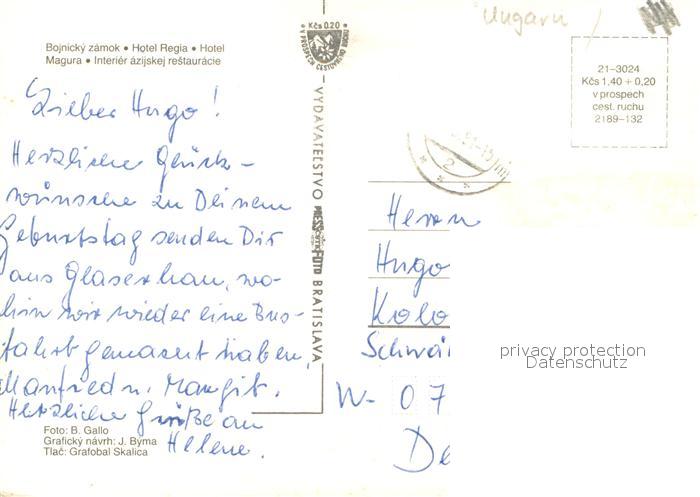 Ungarn /
Kčs 0,20
V PROSPECH CESTOVNÉHO RUCHU
Bojnický zámok • Hotel Regia • Hotel
Magura • Interiér ázijskej reštaurácie
21–3024
Kčs 1,40 + 0,20
v prospech
cest. ruchu
2189–132
Lieber Hugo!
Herzliche Glück-
wünsche zu Deinem
Geburtstag senden Dir
aus Glaserhau, wo-
hin wir wieder eine Bus-
fahrt gemacht haben,
Manfred u. Margit.
Herzliche Grüße an
Helene.
VYDAVATEĽSTVO PRESSFOTO BRATISLAVA
Herrn
Hugo
Kolo
Schwäl
W- 07
De
privacy protection
Datenschutz
Foto: B. Gallo
Grafický návrh: J. Byma
Tlač: Grafobal Skalica